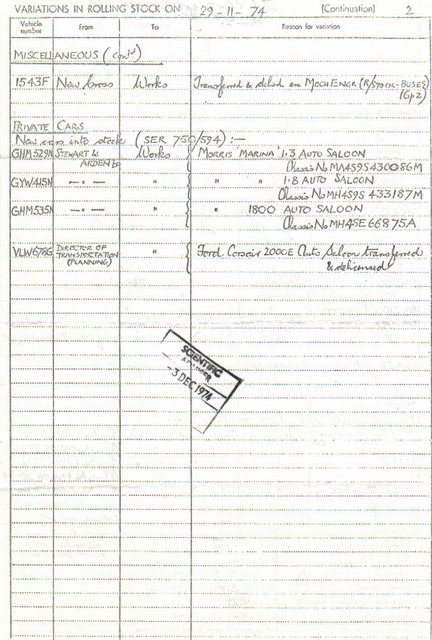 VARIATIONS IN ROLLING STOCK ON 29-11-74 (Continuation) 2
Vehicle number From To Reason for variation
MISCELLANEOUS (contd)
1543F New Cross Works Transferred & delsd on MECH ENGR (R/STOCK-BUSES)
(Gp2)
PRIVATE CARS
New cars into stock (SER 750/594) :—
GHM529N STEWART & Works MORRIS 'MARINA' 1.3 AUTO SALOON
ARDEN Chassis No MA4S9S430086M
GYW445N —"— " " " 1.8 AUTO SALOON
Chassis No MH4S9S 433187M
GHM535N —"— " " 1800 AUTO SALOON
Chassis No MH4SE66875A
VLW678G DIRECTOR OF " Ford Corsair 2000E Auto Saloon transferred
TRANSPORTATION & delicensed
(PLANNING)
SCIENTIFIC
ADVISER
-3 DEC 1974